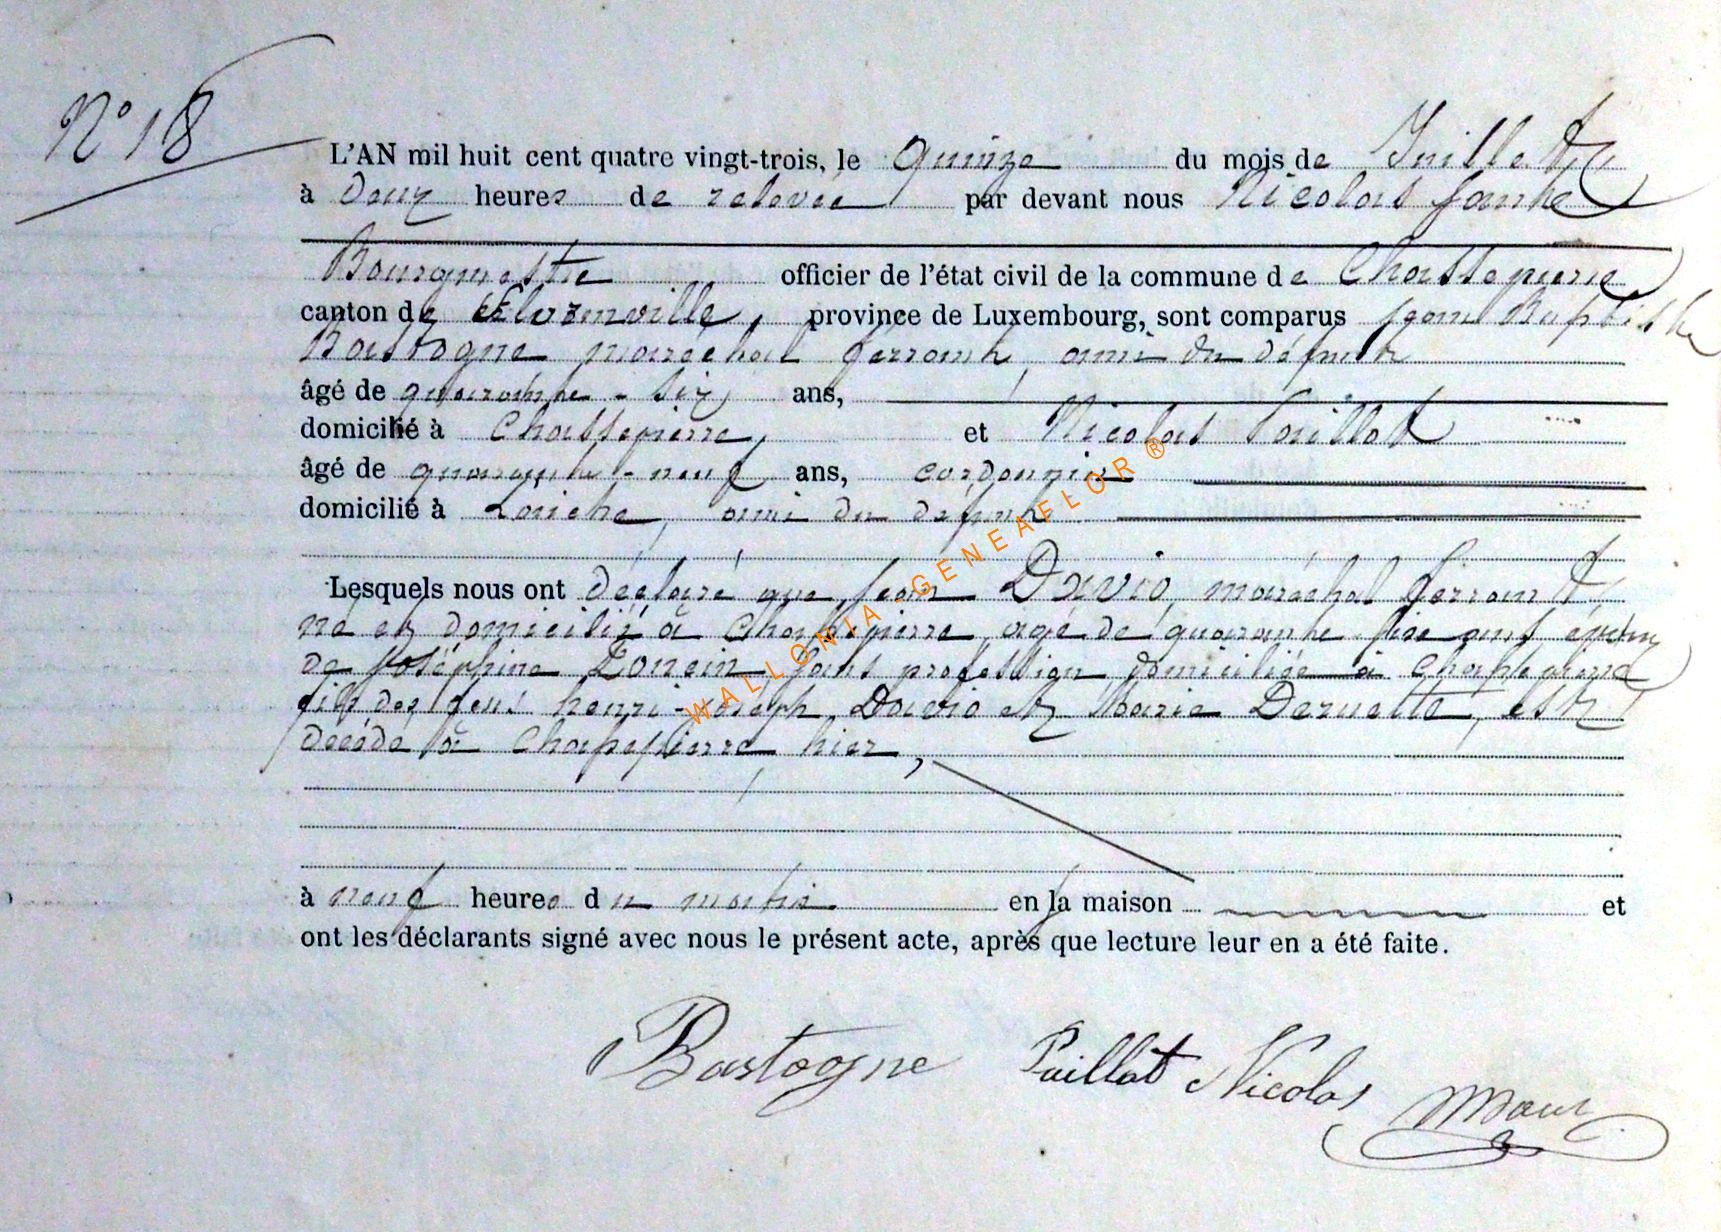 N° 18
L'AN mil huit cent quatre vingt-trois, le quinze du mois de Juillet
à deux heures de relevée par devant nous Nicolas
Bourgmestre officier de l'état civil de la commune de Chassepierre
canton de Florenville, province de Luxembourg, sont comparus Jean Baptiste
Bastogne maréchal ferrant, ami du défunt
âgé de quarante-six ans,
domicilié à Chassepierre, et Nicolas Poillot
âgé de quarante-neuf ans, cordonnier
domicilié à Laiche, ami du défunt
Lesquels nous ont déclaré que Jean David, maréchal ferrant,
né et domicilié à Chassepierre, agé de quarante ans époux
de Joséphine sans profession domiciliée à Chassepierre
fils des feus henri-joseph David et Marie est
décédé à Chassepierre hier,
à neuf heures du matin en la maison et
ont les déclarants signé avec nous le présent acte, après que lecture leur en a été faite.
Bastogne Poillot Nicolas
WALLONIA-GENEAFLOR®